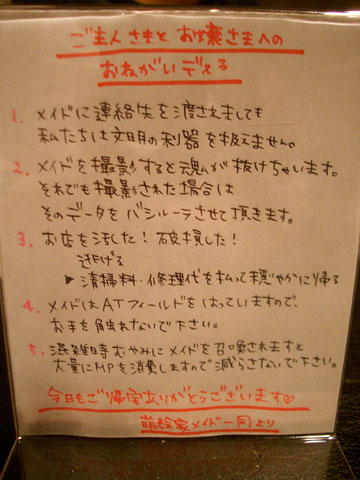 ご主人さまと お嬢さまへの
おねがいデえる
1. メイドに連絡先を渡されましても
私たちは文明の利器を扱えません。
2. メイドを撮影すると魂が抜けちゃいます。
それでも撮影された場合は
そのデータをバシルーラさせて頂きます。
3. お店を汚した!破損した!
逃げる
▶ 清掃料・修理代を払って穏やかに帰る
4. メイドはATフィールドをはっていますので、
お手を触れないで下さい。
5. 混雑時むやみにメイドを召喚されますと
大量にMPを消費しますので減らさないで下さい。
今日もご帰宅ありがとうございます♡
萌絵家メイド一同より